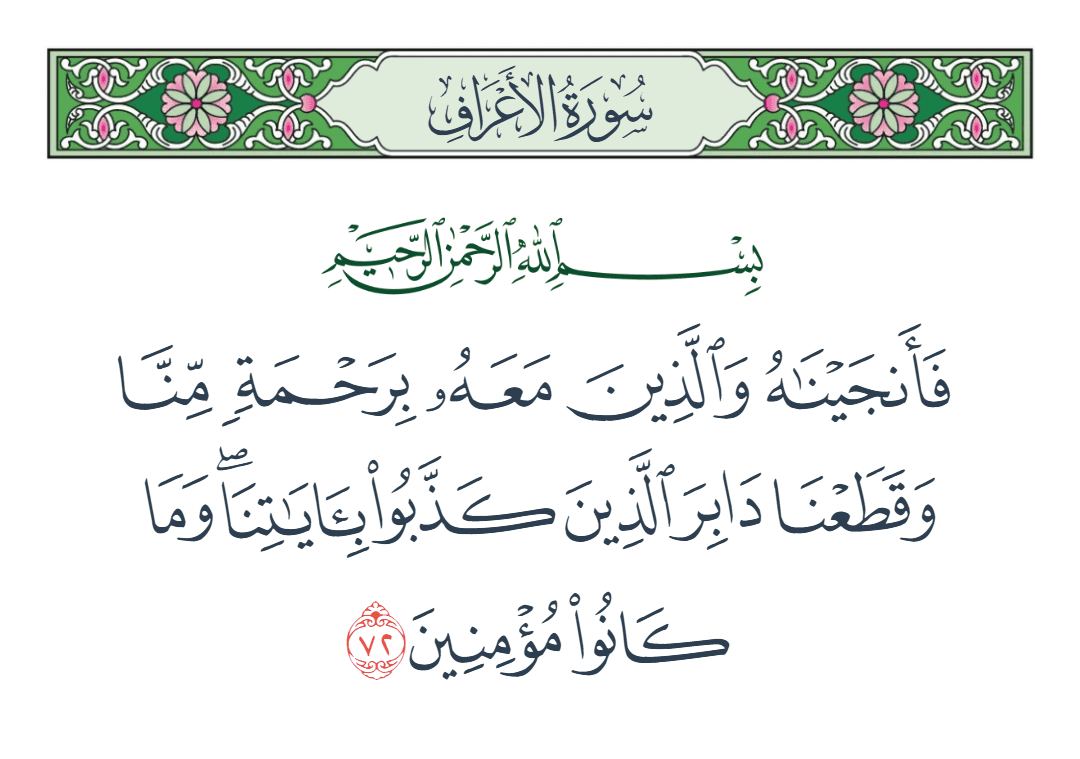 سُورَةُ الأَعْرَافِ
بِسْمِ ٱللَّهِ ٱلرَّحْمَٰنِ ٱلرَّحِيمِ
فَأَنجَيْنَٰهُ وَٱلَّذِينَ مَعَهُۥ بِرَحْمَةٖ مِّنَّا
وَقَطَعْنَا دَابِرَ ٱلَّذِينَ كَذَّبُوا۟ بِـَٔايَٰتِنَاۖ وَمَا
كَانُوا۟ مُؤْمِنِينَ ٧٢